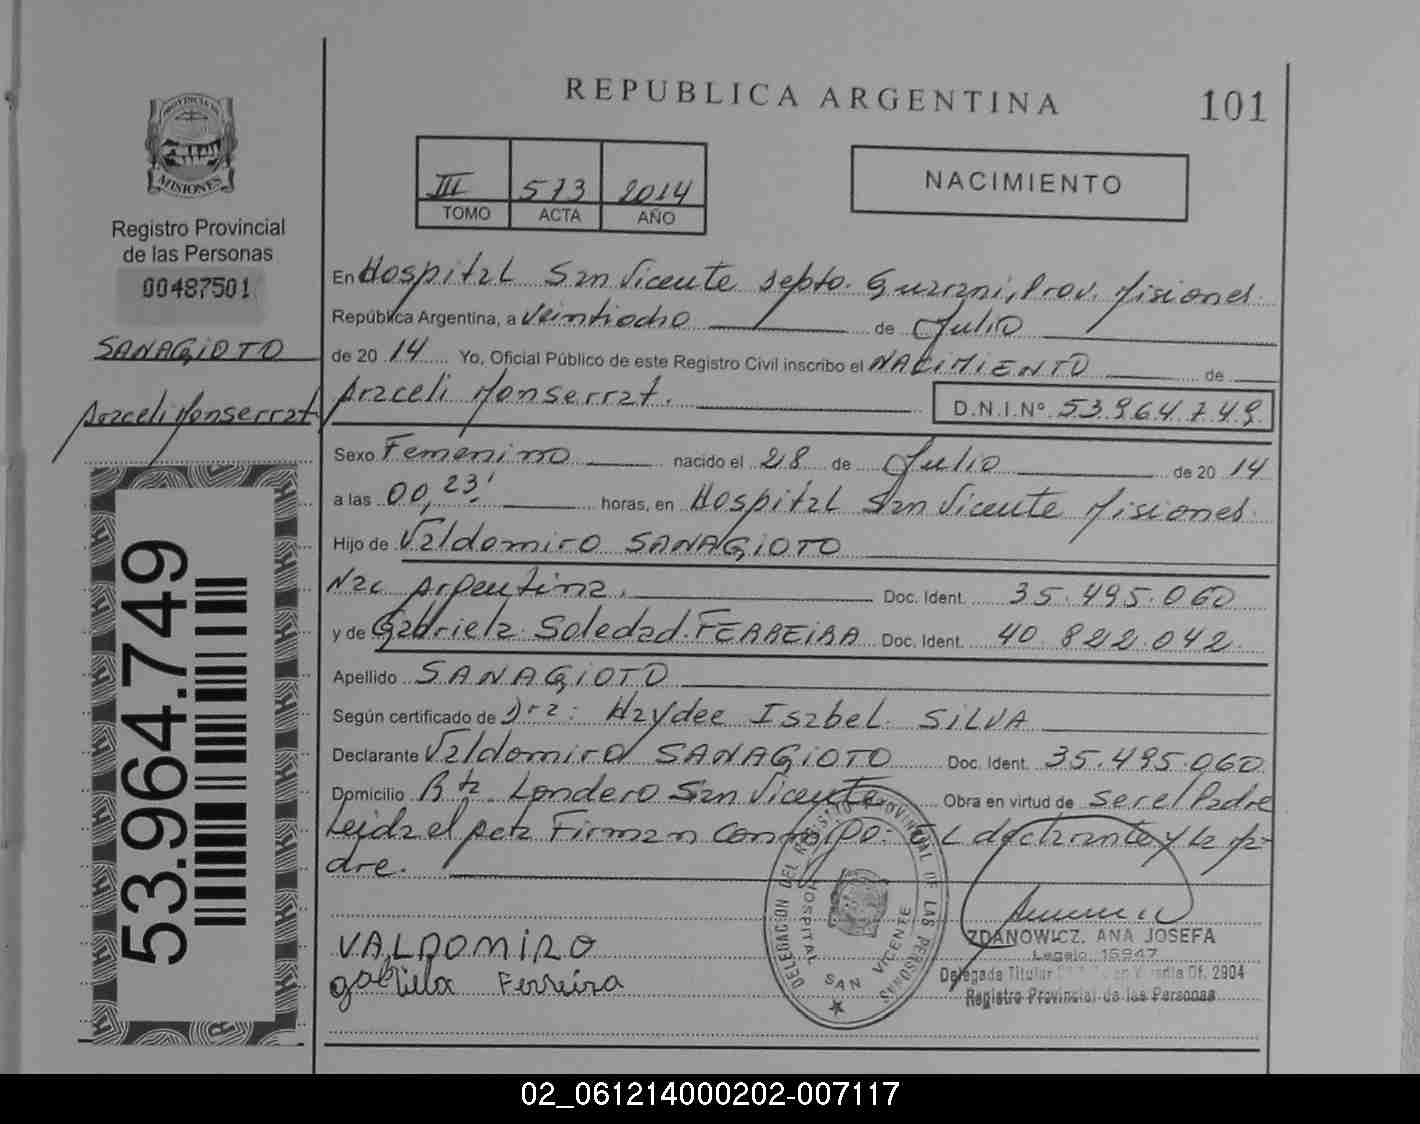 PROVINCIA DE
MISIONES
Registro Provincial
de las Personas
00487501
SANAGIOTO
Araceli Monserrat
53.964.749
REPUBLICA ARGENTINA 101
III 573 2014
TOMO ACTA AÑO
NACIMIENTO
En Hospital San Vicente Depto. Guarani, Prov. Misiones.
República Argentina, a Veintiocho de Julio
de 20 14 Yo, Oficial Público de este Registro Civil inscribo el NACIMIENTO de
Araceli Monserrat. D.N.I.Nº 53.964.749.
Sexo Femenino nacido el 28 de Julio de 20 14
a las 00,23' horas, en Hospital San Vicente Misiones
Hijo de Valdomiro SANAGIOTO
Nac Argentina. Doc. Ident. 35.495.060
y de Gabriela Soledad FERREIRA Doc. Ident. 40.822.042
Apellido SANAGIOTO
Según certificado de Dra: Haydee Isabel SILVA
Declarante Valdomiro SANAGIOTO Doc. Ident. 35.495.060
Domicilio Rta Londero San Vicente Obra en virtud de ser el Padre
Leida el acta Firman conmigo: el declarante y la ma-
dre.
VALDOMIRO
gabriela Ferreira
DELEGACION DEL REGISTRO PROVINCIAL DE LAS PERSONAS
HOSPITAL SAN VICENTE
ZDANOWICZ, ANA JOSEFA
Legajo 15947
Delegada Titular Of. 2904
Registro Provincial de las Personas
02_061214000202-007117